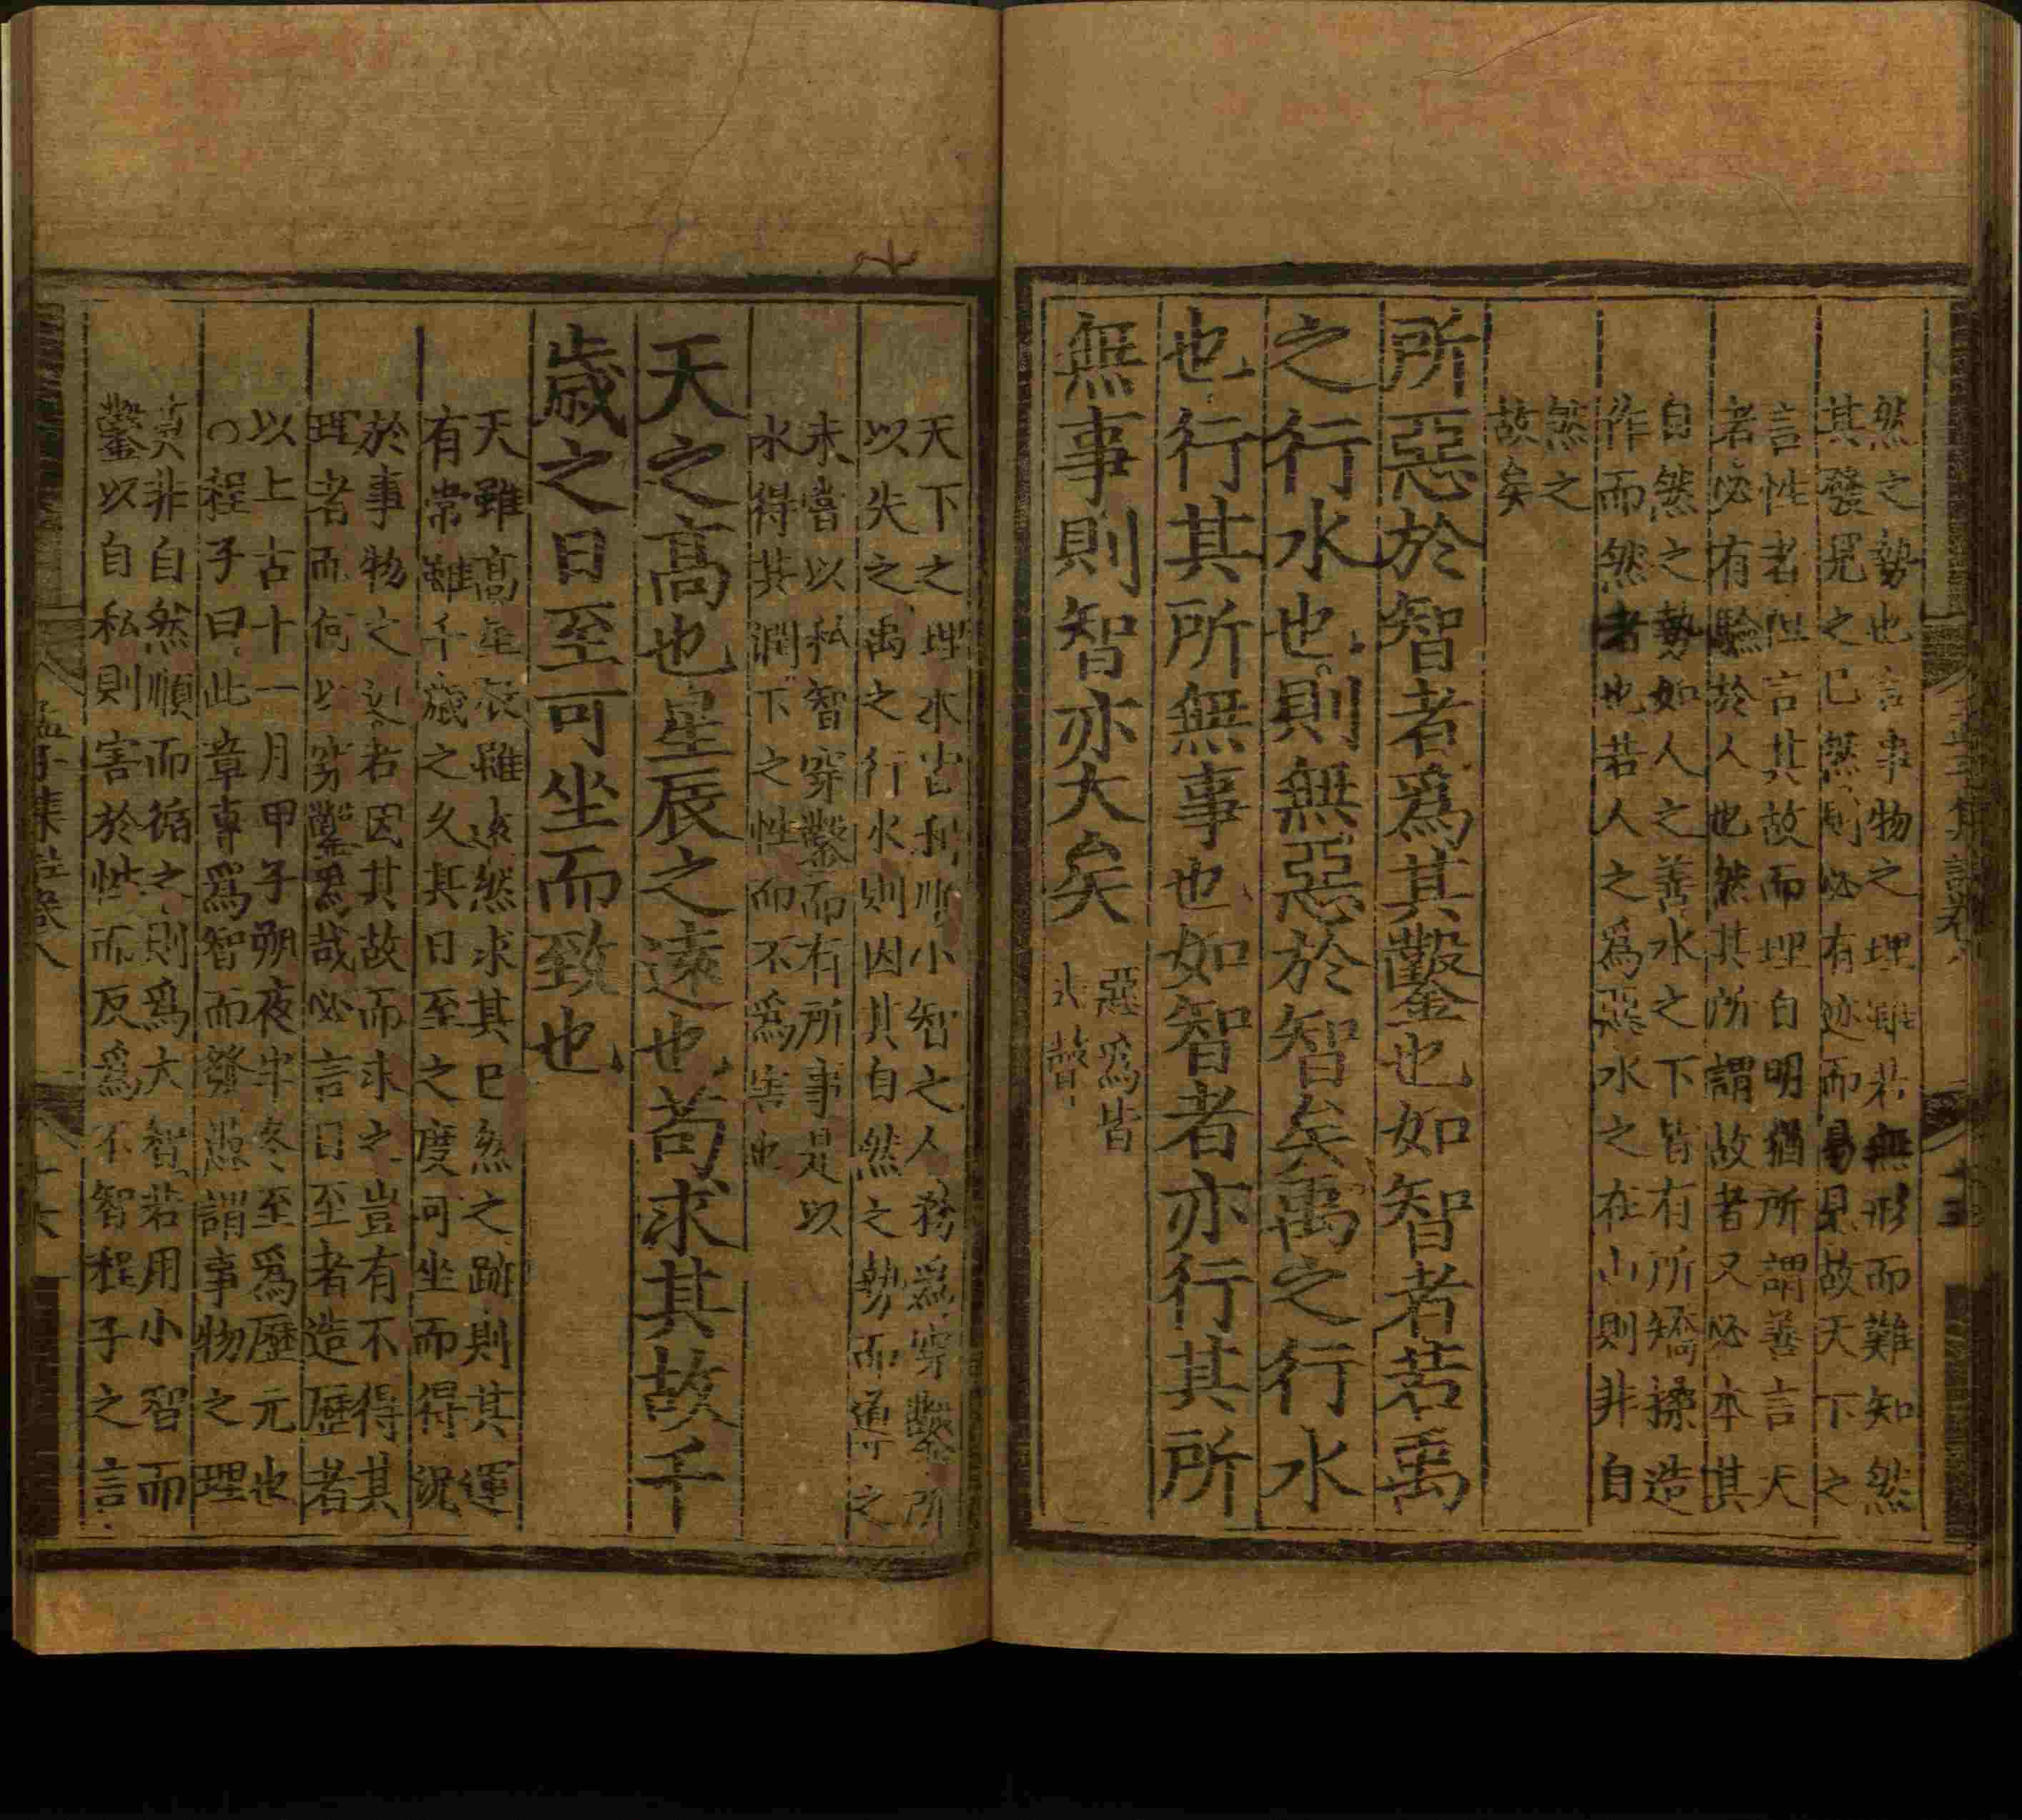 然之勢也言事物之理雖若無形而難知然
其發見之已然則必有迹而易見故天下之
言性者但言其故而理自明猶所謂善言天
者必有驗於人也然其所謂故者又必本其
自然之勢如人之善水之下皆有所矯揉造
作而然者也若人之爲惡水之在山則非自
然之
故矣
所惡於智者爲其鑿也如智者若禹
之行水也則無惡於智矣禹之行水
也行其所無事也如智者亦行其所
無事則智亦大矣
惡爲皆
去聲
天下之理本皆利順小智之人務爲穿鑿所
以失之禹之行水則因其自然之勢而導之
未嘗以私智穿鑿而有所事是以
水得其潤下之性而不爲害也
天之高也星辰之遠也苟求其故千
歲之日至可坐而致也
天雖高星辰雖遠然求其已然之跡則其運
有常雖千歲之久其日至之度可坐而得況
於事物之近若因其故而求之豈有不得其
理者而何以穿鑿爲哉必言日至者造歷者
以上古十一月甲子朔夜半冬至爲歷元也
○程子曰此章專爲智而發愚謂事物之理
莫非自然順而循之則爲大智若用小智而
鑿以自私則害於性而反爲不智程子之言
孟子集註卷八
十六